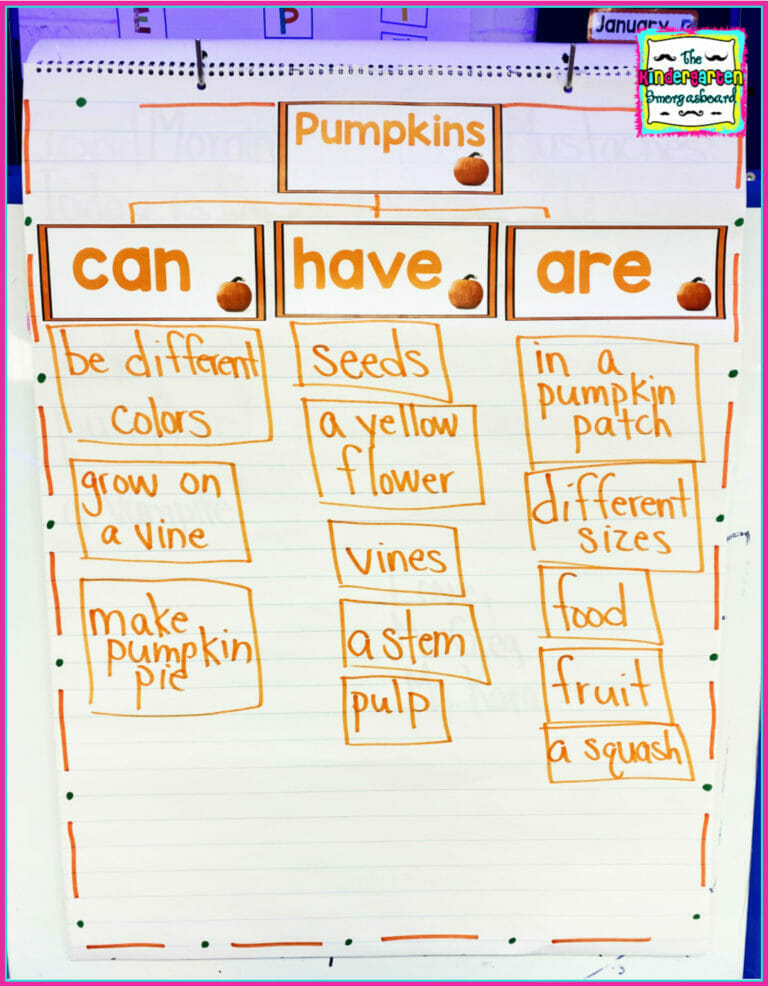 E P I
January
The
Kindergarten
Smorgasboard
Pumpkins
can
have
are
be different
colors
grow on
a vine
make
pumpkin
pie
seeds
a yellow
flower
vines
a stem
pulp
in a
pumpkin
patch
different
sizes
food
fruit
a squash